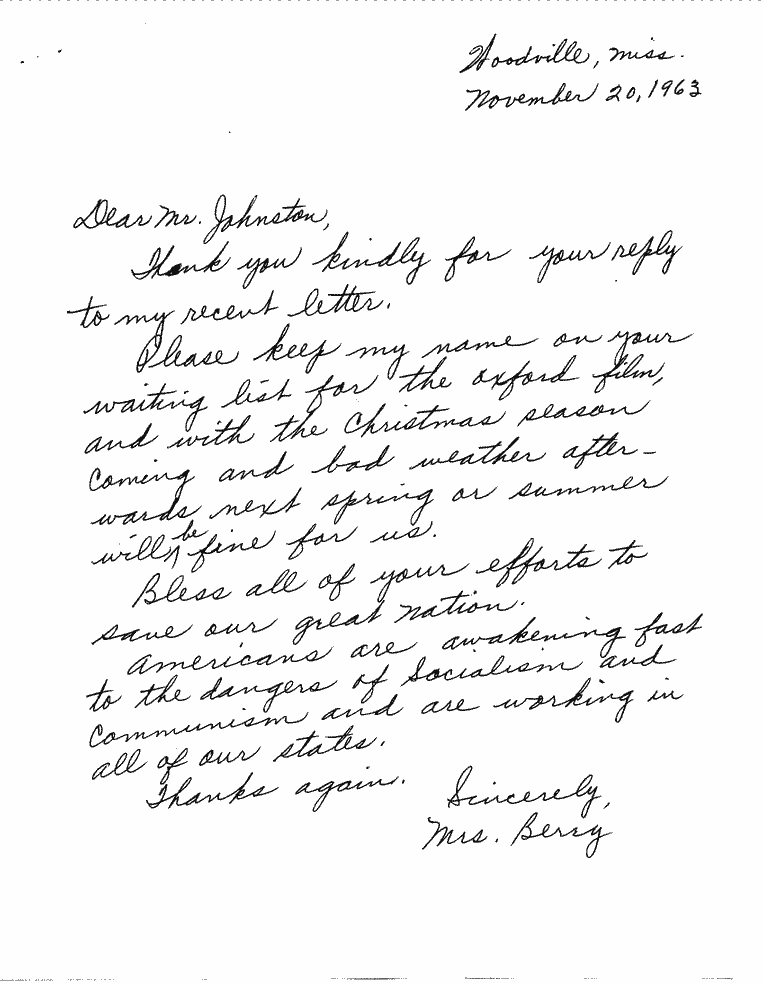 Woodville, Miss.
November 20, 1963
Dear Mr. Johnston,
Thank you kindly for your reply
to my recent letter.
Please keep my name on your
waiting list for the Oxford film,
and with the Christmas season
coming and bad weather after-
wards next spring or summer
will be fine for us.
Bless all of your efforts to
save our great nation.
Americans are awakening fast
to the dangers of Socialism and
Communism and are working in
all of our states.
Thanks again.
Sincerely,
Mrs. Berry